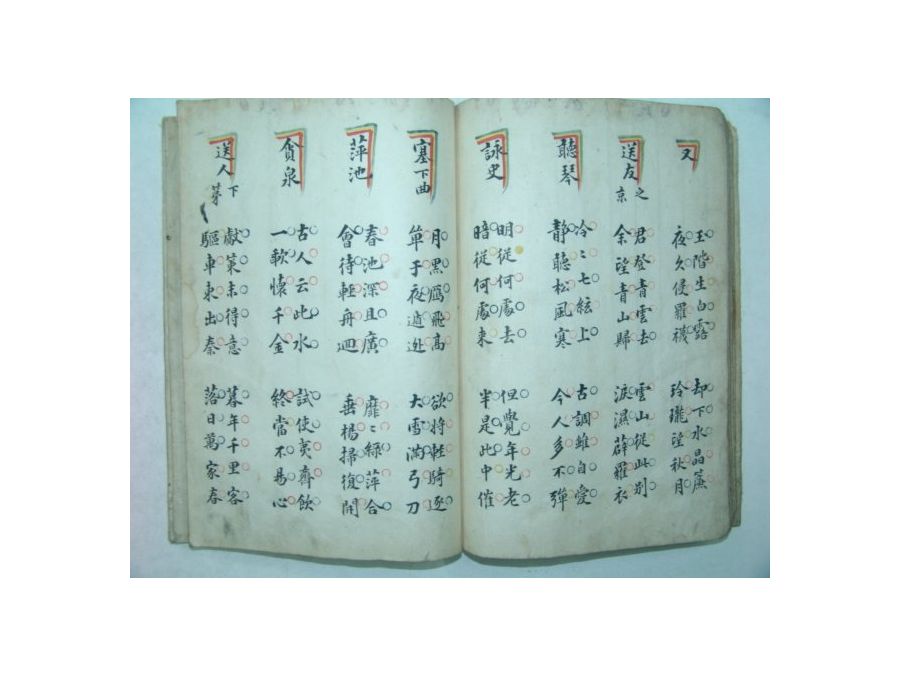 又
玉階生白露
夜久侵羅襪
却下水晶簾
玲瓏望秋月
送友之京
君登青雲去
余望青山歸
雲山從此別
淚濕薜羅衣
聽琴
冷〻七絃上
靜聽松風寒
古調雖自愛
今人多不彈
詠史
明從何處去
暗從何處來
但覺年光老
半是此中催
塞下曲
月黑鴈飛高
單于夜遁逃
欲將輕騎逐
大雪滿弓刀
萍池
春池深且廣
會待輕舟迴
靡〻綠萍合
垂楊掃復開
貪泉
古人云此水
一歃懷千金
試使夷齊飮
終當不易心
送人下苐
獻策未得意
驅車東出秦
暮年千里客
落日萬家春